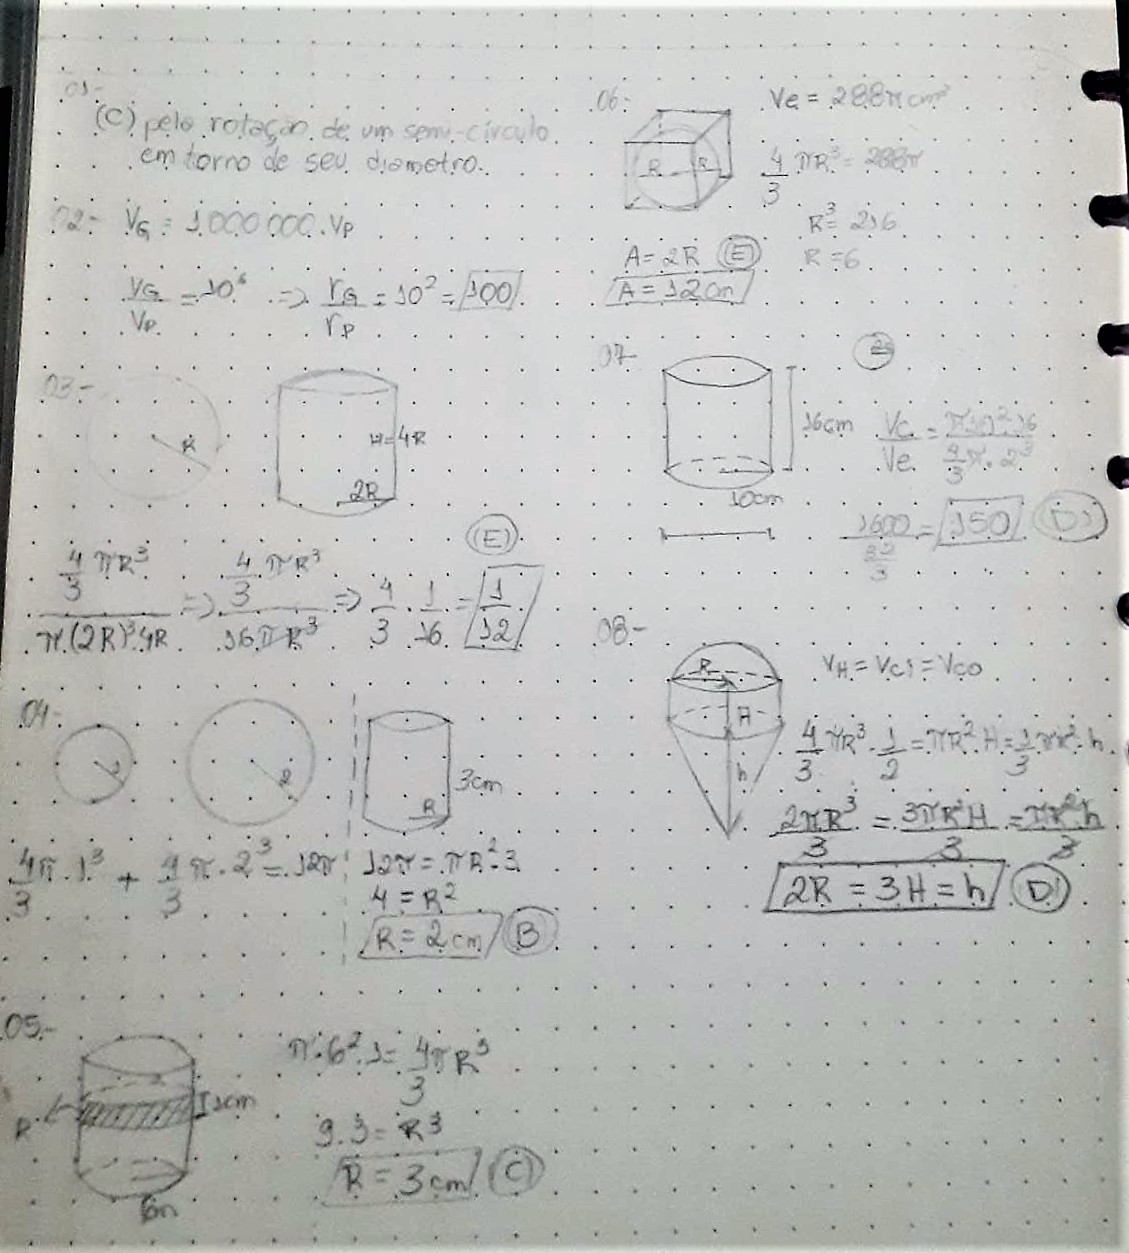 01-
(C) pela rotação de um semi-círculo
em torno de seu diametro.
02- VG = 1000000.VP
VG/VP = 10⁶ => rG/rP = 10² = 100
03-
R
H=4R
2R
(E)
4/3 πR³ / π.(2R)².4R => 4/3 πR³ / 16πR³ => 4/3 . 1/16 = 1/12
04-
1
2
3cm
R
4π/3 . 1³ + 4/3 π.2³ = 12π
12π = πR².3
4 = R²
R = 2cm (B)
05-
R
1cm
6m
π.6².1 = 4πR³/3
9.3 = R³
R = 3cm (C)
06-
R R
Ve = 288π cm³
4/3 πR³ = 288π
R³ = 216
R = 6
A = 2R (E)
A = 12cm
07-
16cm
10cm
Vc/Ve = π10².16 / 4/3 π.2³
1600 / 32/3 = 150 (D)
08-
R
H
h
VH = VCi = VCO
4/3 πR³ . 1/2 = πR² H = 1/3 πr².h
2πR³/3 = 3πR²H/3 = πr²h/3
2R = 3H = h (D)